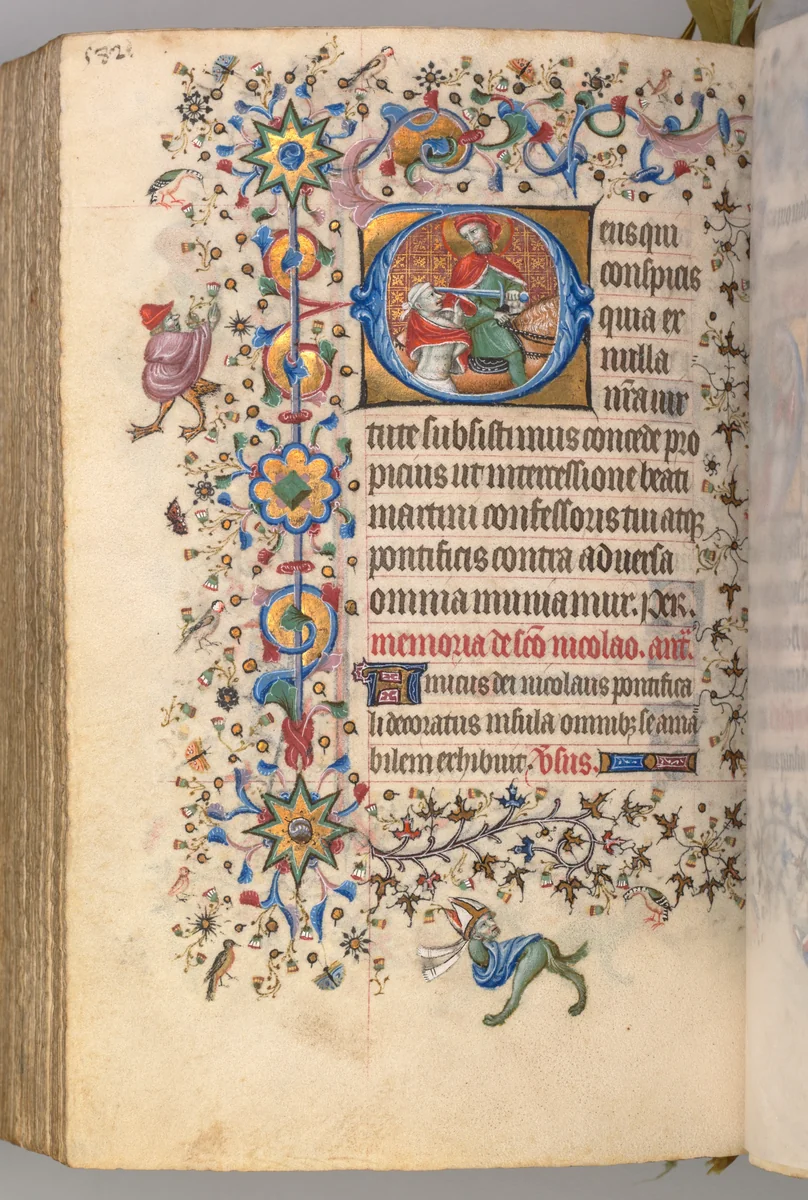 582
Deus qui
conspicis
quia ex
nulla
nr̄a uir
tute subsistimus concede pro
picius ut intercessione beati
martini confessoris tui atqꝫ
pontificis contra aduersa
omnia muniamur. Per.
memoria de sc̄o nicolao. ant.̄
Amicus dei nicolaus pontifica
li decoratus insula omnibꝫ se ama
bilem exhibuit. v̄sus.